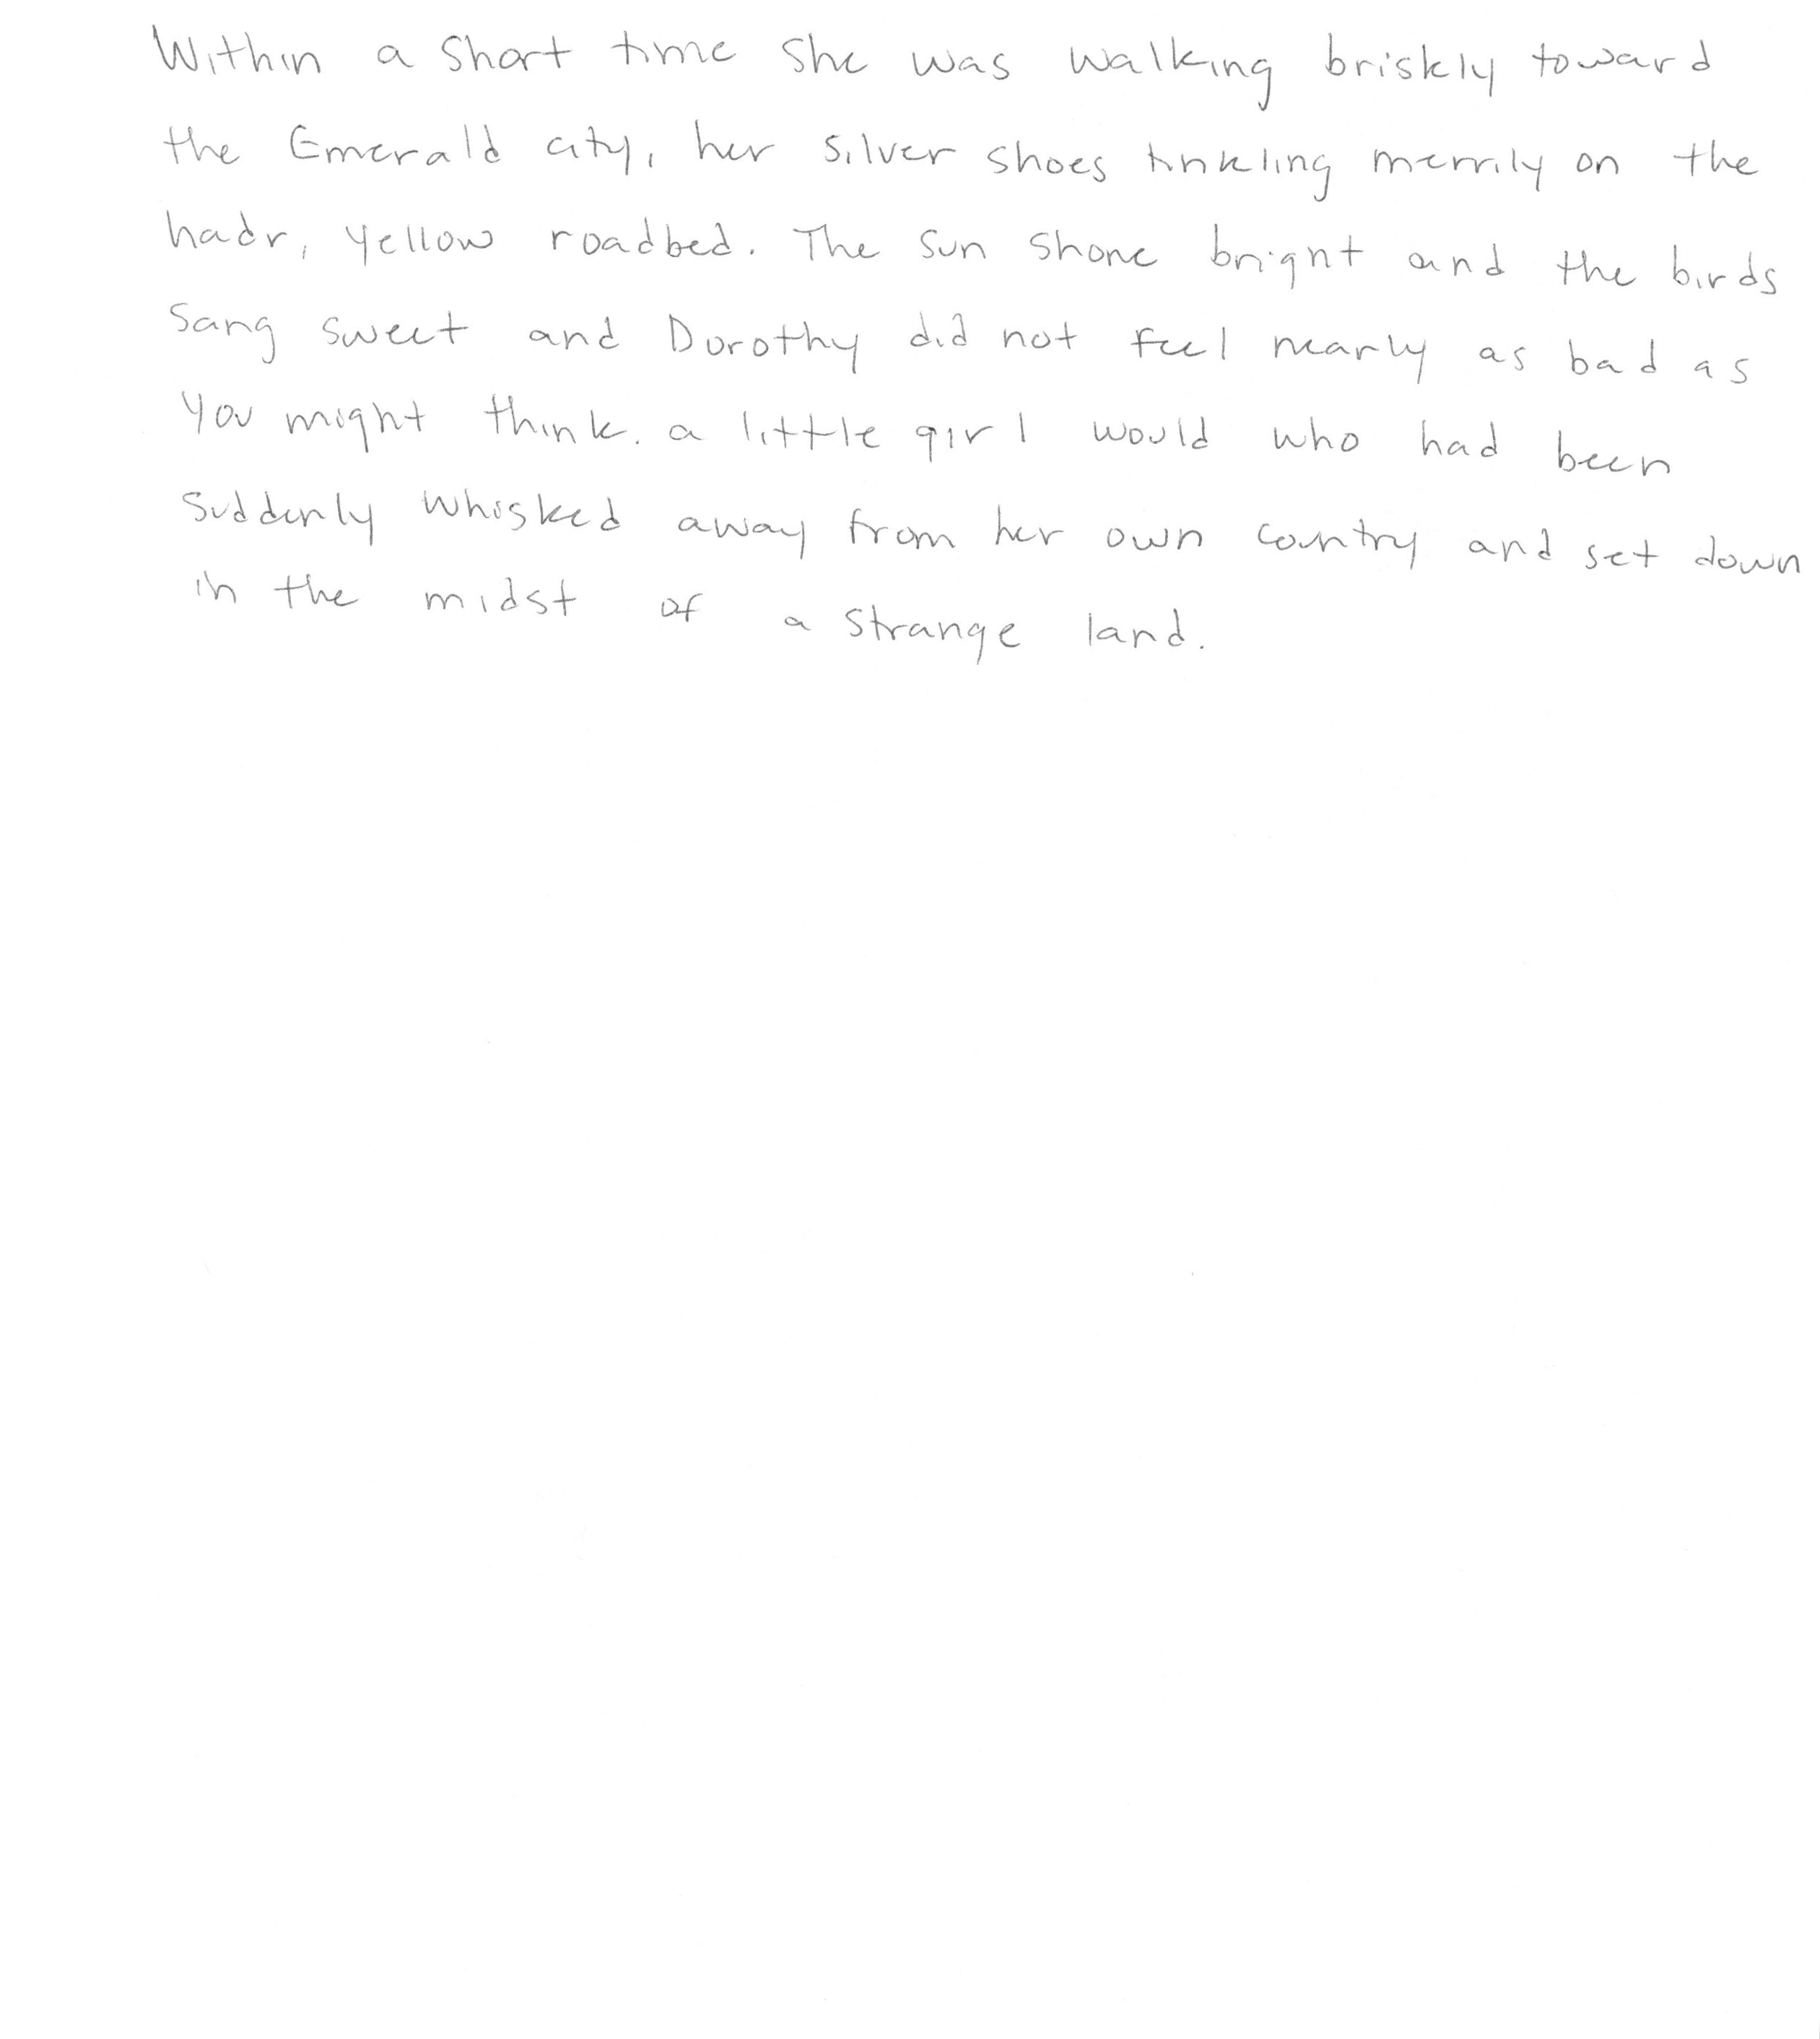 Within a short time she was walking briskly toward
the Emerald city, her silver shoes tinkling merrily on the
hadr, yellow roadbed. The sun shone bright and the birds
sang sweet and Dorothy did not feel nearly as bad as
you might think. a little girl would who had been
suddenly whisked away from her own country and set down
in the midst of a strange land.